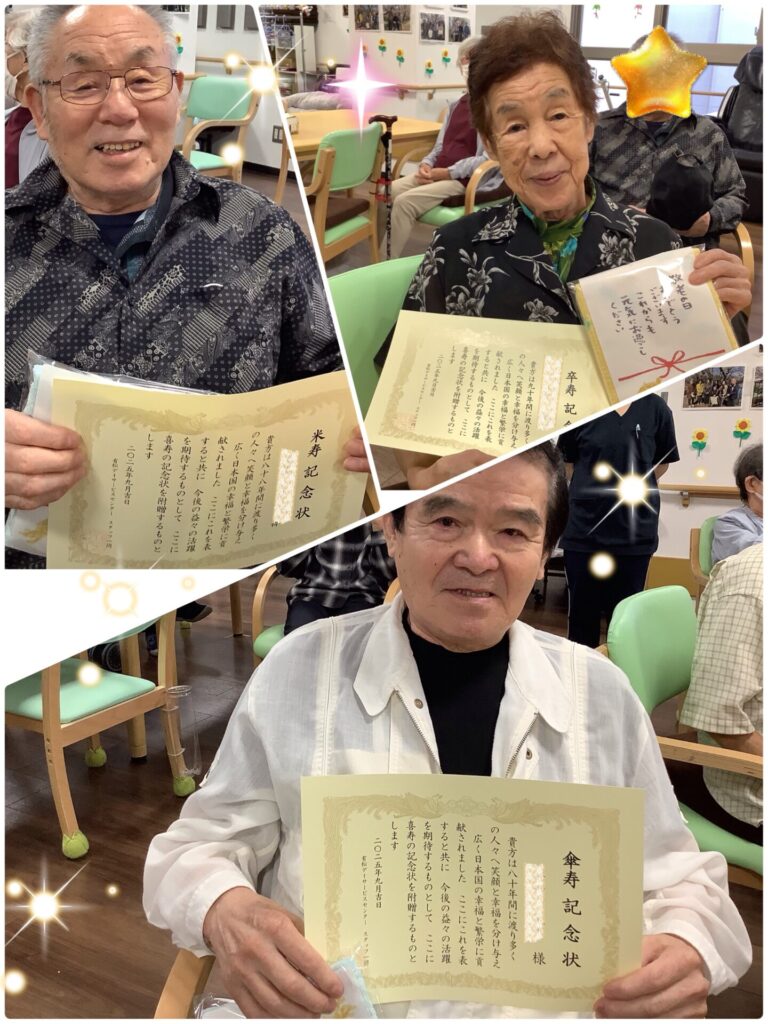 米寿記念状
貴方は八十八年間に渡り多く
の人々へ笑顔と幸福を分け与え
広く日本国の幸福と繁栄に貢
献されました ここにこれを表
すると共に 今後の益々の活躍
を期待するものとして ここに
喜寿の記念状を附贈するものと
します
二〇二五年九月吉日
有松デーサービスセンター スタッフ一同
卒寿記念
貴方は九十年間に渡り多く
の人々へ笑顔と幸福を分け与え
広く日本国の幸福と繁栄に貢
献されました ここにこれを表
すると共に 今後の益々の活躍
を期待するものとして ここに
喜寿の記念状を附贈するものと
します
二〇二五年九月吉日
敬老の日
おめでとう
ございます
これからも
元気にお過ごし
ください
傘寿記念状
様
貴方は八十年間に渡り多く
の人々へ笑顔と幸福を分け与え
広く日本国の幸福と繁栄に貢
献されました ここにこれを表
すると共に 今後の益々の活躍
を期待するものとして ここに
喜寿の記念状を附贈するものと
します
二〇二五年九月吉日
有松デーサービスセンター スタッフ一同